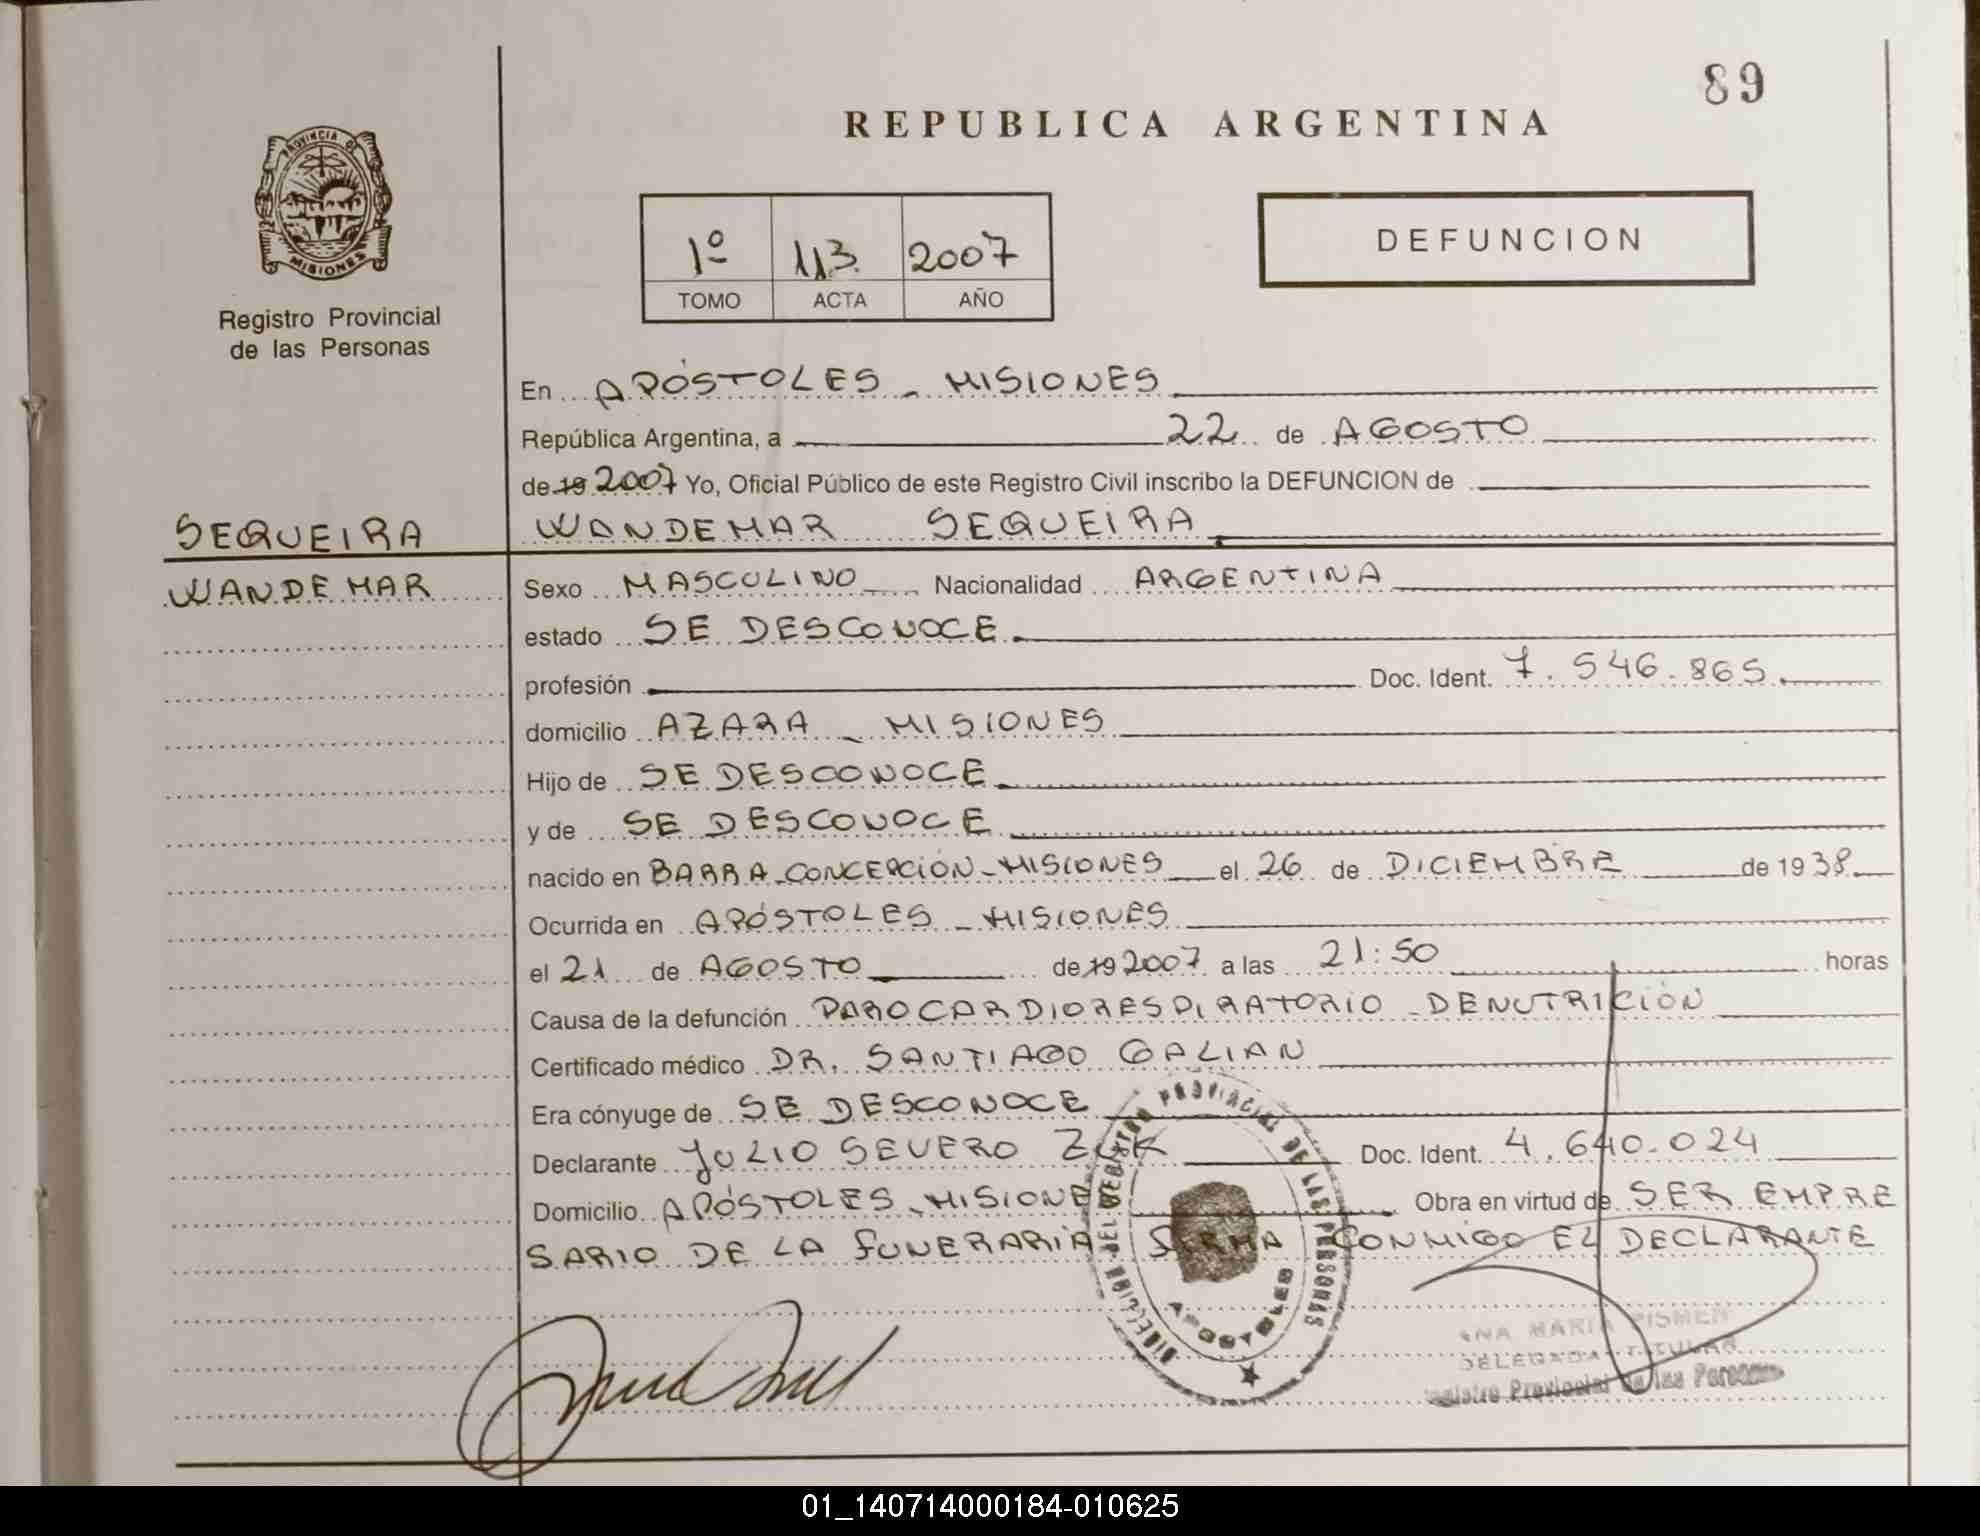 89
REPUBLICA ARGENTINA
PROVINCIA DE
MISIONES
Registro Provincial
de las Personas
1º 113. 2007
TOMO ACTA AÑO
DEFUNCION
En APÓSTOLES - MISIONES
República Argentina, a 22 de AGOSTO
de 19 2007 Yo, Oficial Público de este Registro Civil inscribo la DEFUNCION de
SEQUEIRA
WANDEMAR SEQUEIRA
WANDEMAR
Sexo MASCULINO Nacionalidad ARGENTINA
estado SE DESCONOCE
profesión Doc. Ident. 7.546.865
domicilio AZARA - MISIONES
Hijo de SE DESCONOCE
y de SE DESCONOCE
nacido en BARRA CONCEPCIÓN - MISIONES el 26 de DICIEMBRE de 1938
Ocurrida en APÓSTOLES - MISIONES
el 21 de AGOSTO de 19 2007 a las 21:50 horas
Causa de la defunción PAROCARDIORESPIRATORIO - DENUTRICIÓN
Certificado médico DR. SANTIAGO GALIAN
Era cónyuge de SE DESCONOCE
Declarante JULIO SEVERO ZUK Doc. Ident. 4.640.024
Domicilio APÓSTOLES - MISIONE Obra en virtud de SER EMPRE
SARIO DE LA FUNERARIA FIRMA CONMIGO EL DECLARANTE
DIRECCION DEL REGISTRO PROVINCIAL DE LAS PERSONAS
APOSTOLES
ANA MARIA PISMEN
DELEGADA TITULAR
Registro Provincial de las Personas
01_140714000184-010625